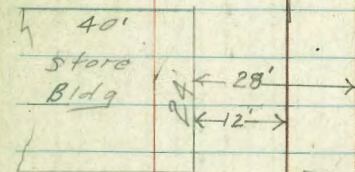 40'
Store
Bldg
24'
28'
12'